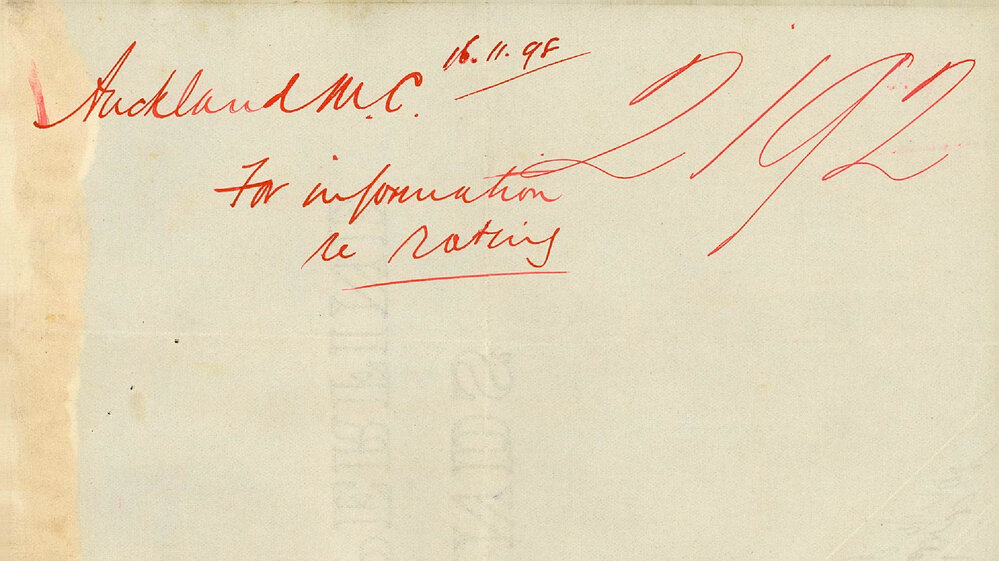 Auckland M.C. 16.11.98
2192
For information
re rating